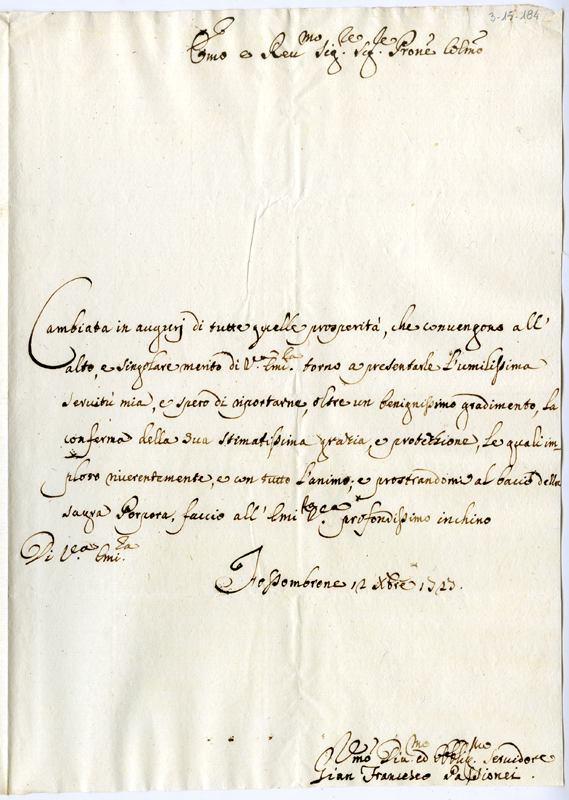 3-15-184
Emo e Revmo Sigre Sigre Prone Colmo
Cambiata in augurj di tutte quelle prosperità, che convengono all'
alto, e singolare merito di Vra Emiza. torno a presentarle l'umilissima
servitù mia, e spero di riportarne, oltre un benignissimo gradimento, la
conferma della sua stimatissima grazia, e protezzione, le quali im-
ploro riverentemente, e con tutto l'animo; e prostrandomi al bacio della
sagra Porpora, faccio all' Emiza Vra profondissimo inchino
Di Vra. Emiza.
Fossombrone 12 Xbre 1723.
Vmo Divmo ed Obbligmo. Servidore
Gian Francesco Passionei.